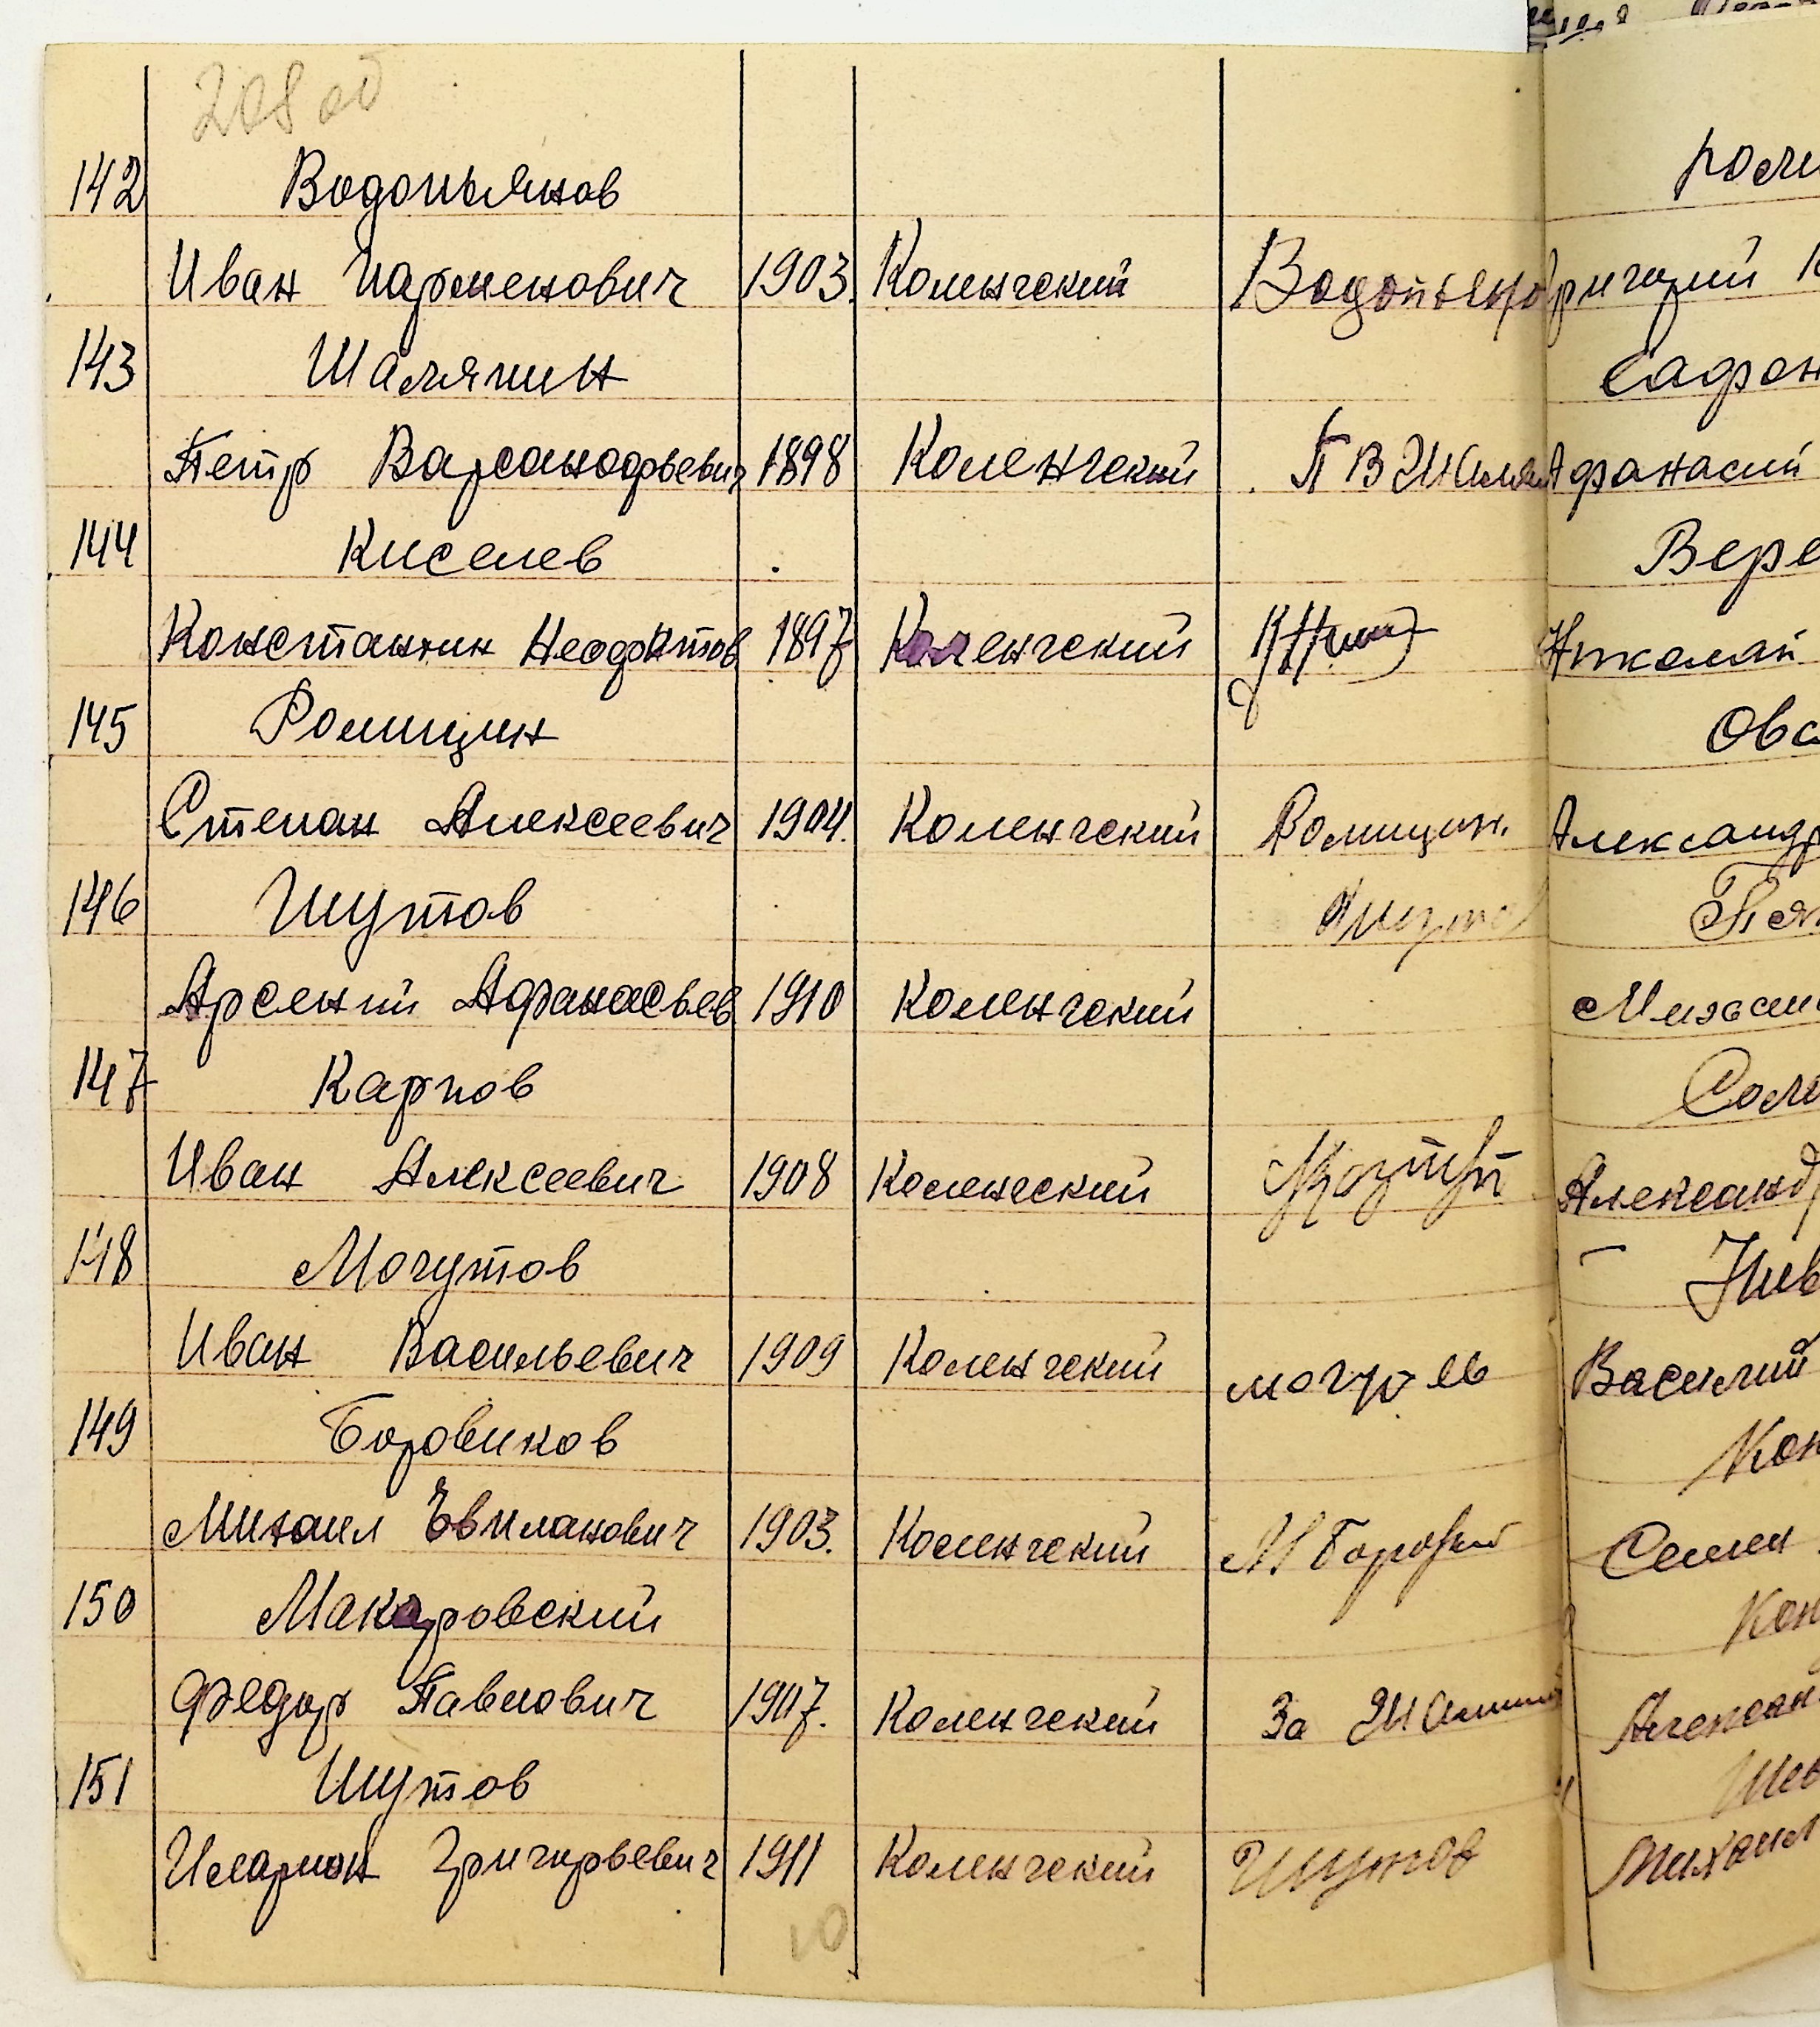 208 об
142 Водопьянов
Иван Парменович 1903. Коленгский Водопьяно
143 Шаляпин
Петр Варсанофьевич 1898 Коленгский П В Шаля
144 Киселев
Константин Неофитов 1897 Коленгский
145 Ромицин
Степан Алексеевич 1904. Коленгский Ромицин.
146 Шутов
Арсений Афанасьев 1910 Коленгский
147 Карпов
Иван Алексеевич 1908 Коленгский
148 Могутов
Иван Васильевич 1909 Коленгский
149 Боровиков
Михаил 1903. Коленгский М Боровик
150 Макаровский
Федор Павлович 1907. Коленгский За
151 Шутов
Иларион Григорьевич 1911 Коленгский Шутов
10
Сафон
Афанасий
Вере
Николай
Овс
Александр
Александ
Василий
Кон
Семен
Кон
Михаил